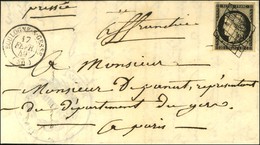 pressée
affranchie
17
FEVR.
A Monsieur
Monsieur Depanut, représentant
du département du gers
a paris